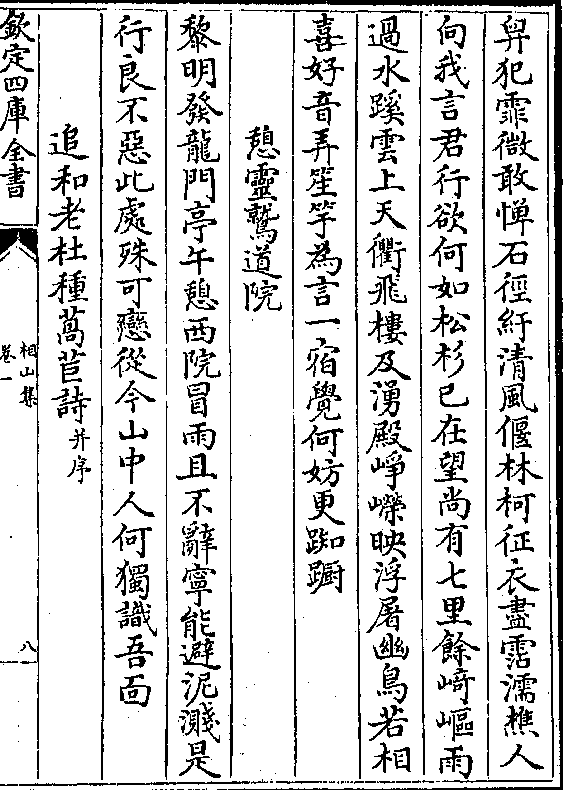 舁犯霏微敢憚石徑紆清風偃林柯征衣盡霑濡樵人
向我言君行欲何如松杉已在望尚有七里餘﨑嶇兩
過水蹊雲上天衢飛樓及湧殿崢嶸映浮屠幽鳥若相
喜好音弄笙竽為言一宿覺何妨更踟蹰
憩靈鷲道院
黎明發龍門亭午憩西院冒雨且不辭寧能避泥濺是
行良不惡此處殊可戀從今山中人何獨識吾面
追和老杜種萵苣詩并序
欽定四庫全書
相山集
卷一
八